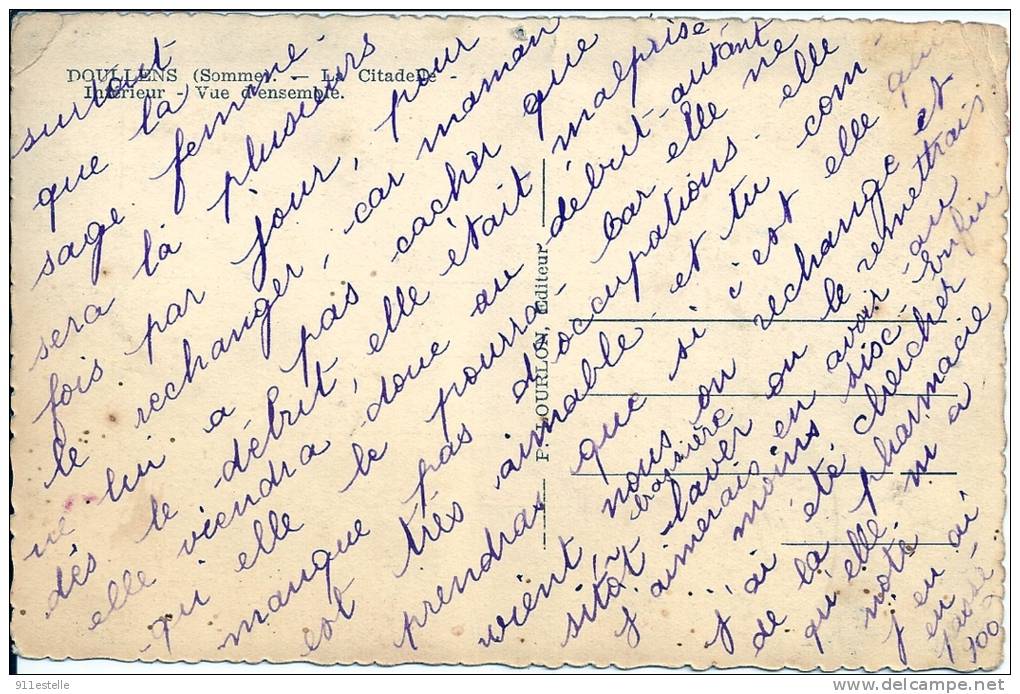 DOULLENS (Somme) — La Citadelle -
Intérieur - Vue d'ensemble.
P. LOURLON, Editeur
surtout
que la
sage femme
sera là plusieurs
fois par jour, pour
le rechanger, car maman
ne lui a pas cacher que
dés le débrit, elle était mal prise
elle viendra donc au début autant
qu elle le pourra. Car elle ne
manque pas d'occupations. elle
est très aimable. et tu con
prendras que si c'est elle qui
vient nous on rechange et
brassière
sitôt laver on le remettrais
j aimerais en avoir au
moins disc
j'ai été chercher enfin
de la pharmacie
qu'elle m a
noté
j en ai
en
passé
100
911estelle
delcampe.net